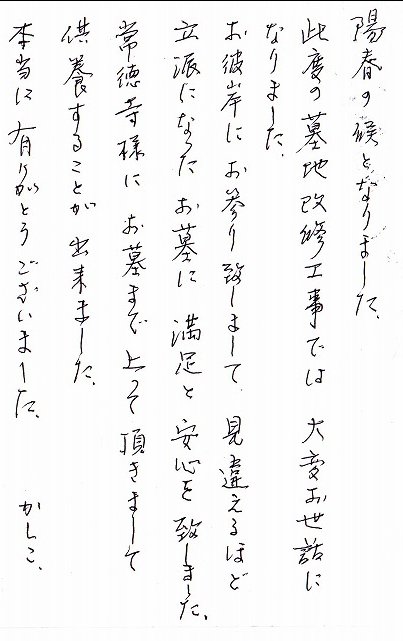 陽春の候となりました。
此度の墓地改修工事では 大変お世話に
なりました。
お彼岸にお参り致しまして、見違えるほど
立派になったお墓に 満足と安心を致しました。
常徳寺様に お墓まで上って頂きまして
供養することが出来ました。
本当に有りがとうございました。 かしこ、